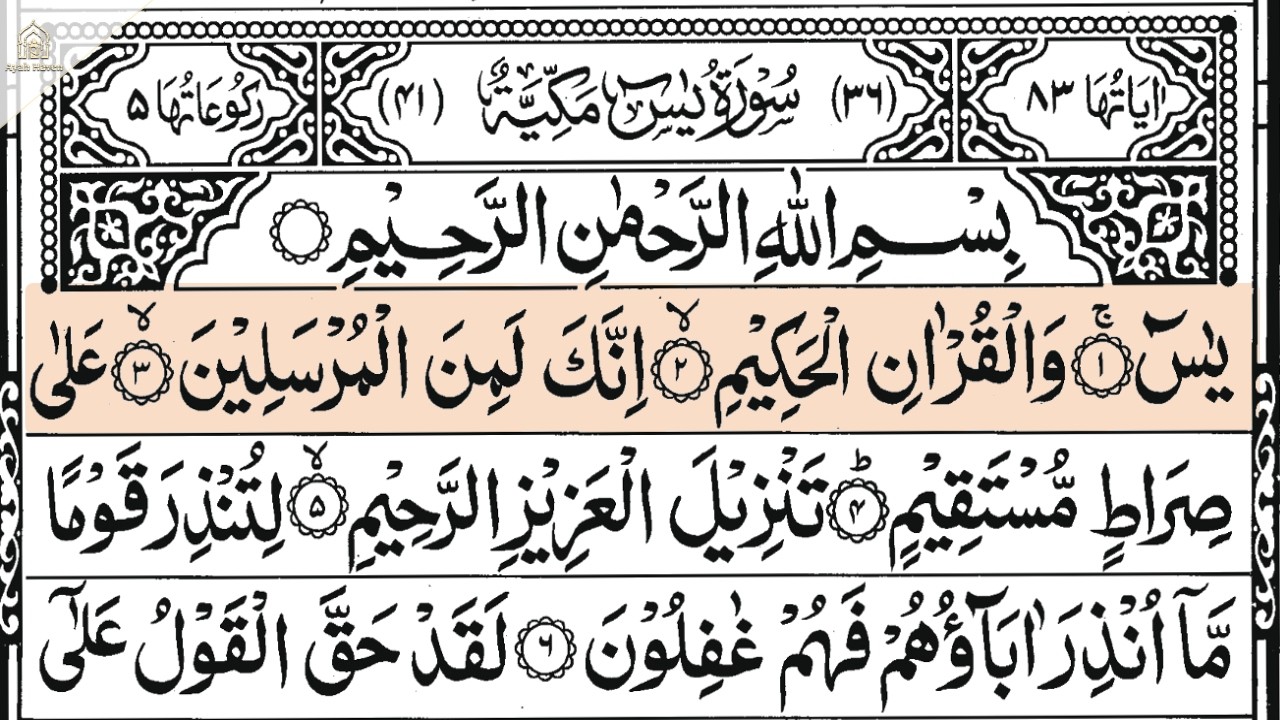 Ayah Haven
اٰيَاتُهَا ٨٣ (٣٦) سُوْرَةُ يٰسٓ مَكِّيَّةٌ (٤١) رُكُوْعَاتُهَا ۵
بِسْمِ اللّٰهِ الرَّحْمٰنِ الرَّحِيْمِ ۝
يٰسٓ ۝١ۚ وَالْقُرْاٰنِ الْحَكِيْمِ ۝٢ۙ اِنَّكَ لَمِنَ الْمُرْسَلِيْنَ ۝٣ۙ عَلٰى
صِرَاطٍ مُّسْتَقِيْمٍ ۝۴ؕ تَنْزِيْلَ الْعَزِيْزِ الرَّحِيْمِ ۝۵ۙ لِتُنْذِرَ قَوْمًا
مَّاۤ اُنْذِرَ اٰبَآؤُهُمْ فَهُمْ غٰفِلُوْنَ ۝۶ لَقَدْ حَقَّ الْقَوْلُ عَلٰۤى